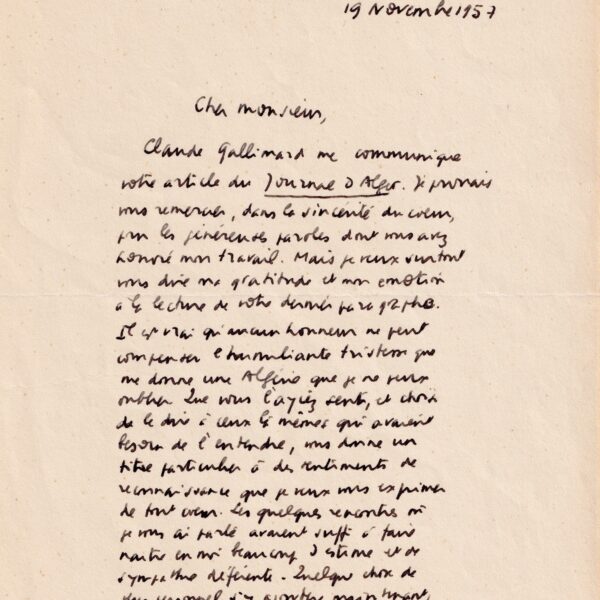 19 Novembre 1957
Cher monsieur,
Claude Gallimard me communique
votre article du Journal d'Alger. Je pourrais
vous remercier, dans la sincérité du cœur,
pour les généreuses paroles dont vous avez
honoré mon travail. Mais je veux surtout
vous dire ma gratitude et mon émotion
à la lecture de votre dernier paragraphe.
Il est vrai qu'aucun honneur ne peut
compenser l'humiliante tristesse que
me donne une Algérie que je ne peux
oublier. Que vous l'ayiez senti, et choisi
de le dire à ceux là mêmes qui avaient
besoin de l'entendre, vous donne un
titre particulier à des sentiments de
reconnaissance que je veux vous exprimer
de tout cœur. Les quelques rencontres où
je vous ai parlé avaient suffi à faire
naître en moi beaucoup d'estime et de
sympathie déférente. Quelque chose de
plus personnel s'y ajoutera maintenant,